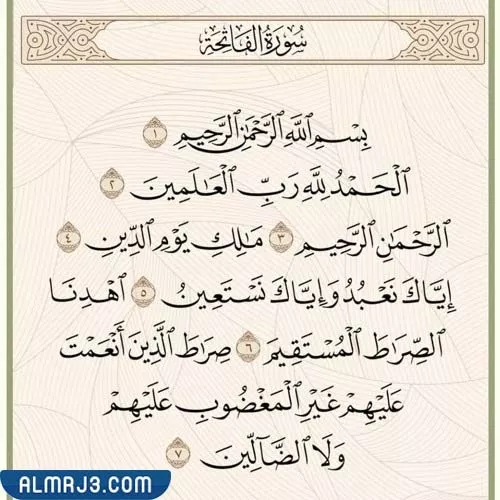 سُورَةُ الفَاتِحَةِ
بِسْمِ ٱللَّهِ ٱلرَّحْمَٰنِ ٱلرَّحِيمِ ١
ٱلْحَمْدُ لِلَّهِ رَبِّ ٱلْعَٰلَمِينَ ٢
ٱلرَّحْمَٰنِ ٱلرَّحِيمِ ٣ مَٰلِكِ يَوْمِ ٱلدِّينِ ٤
إِيَّاكَ نَعْبُدُ وَإِيَّاكَ نَسْتَعِينُ ٥ ٱهْدِنَا
ٱلصِّرَٰطَ ٱلْمُسْتَقِيمَ ٦ صِرَٰطَ ٱلَّذِينَ أَنْعَمْتَ
عَلَيْهِمْ غَيْرِ ٱلْمَغْضُوبِ عَلَيْهِمْ
وَلَا ٱلضَّآلِّينَ ٧
ALMRJ3.COM